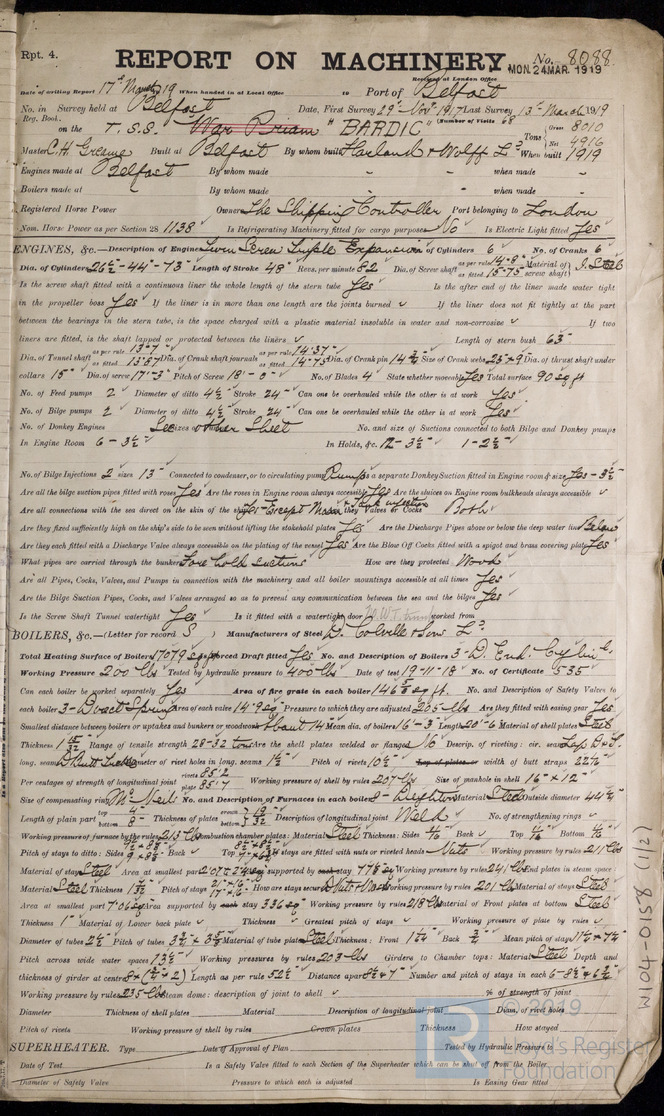 Rpt. 4.
REPORT ON MACHINERY No. 8088
Received at London Office MON. 24 MAR. 1919
Date of writing Report 17th March 19 When handed in at Local Office to Port of Belfast
No. in Survey held at Belfast Date, First Survey 29th Nov 1917 Last Survey 13th March 1919
Reg. Book. (Number of Visits 68
on the T.S.S. "War Priam" "BARDIC" Tons Gross 8010 Net 4916
Master C H Greame Built at Belfast By whom built Harland & Wolff Ld When built 1919
Engines made at Belfast By whom made " when made "
Boilers made at " By whom made " when made "
Registered Horse Power Owners The Shipping Controller Port belonging to London
Nom. Horse Power as per Section 28 1138 Is Refrigerating Machinery fitted for cargo purposes No Is Electric Light fitted Yes
ENGINES, &c.—Description of Engines Twin Screw Triple Expansion No. of Cylinders 6 No. of Cranks 6
Dia. of Cylinders 26½"-44"-73" Length of Stroke 48" Revs. per minute 82 Dia. of Screw shaft as per rule 14.8" as fitted 15.75" Material of screw shaft I. Steel
Is the screw shaft fitted with a continuous liner the whole length of the stern tube Yes Is the after end of the liner made water tight
in the propeller boss Yes If the liner is in more than one length are the joints burned ✓ If the liner does not fit tightly at the part
between the bearings in the stern tube, is the space charged with a plastic material insoluble in water and non-corrosive ✓ If two
liners are fitted, is the shaft lapped or protected between the liners ✓ Length of stern bush 63"
Dia. of Tunnel shaft as per rule 13.7" as fitted 13.87" Dia. of Crank shaft journals as per rule 14.37" as fitted 14.75" Dia. of Crank pin 14¾" Size of Crank webs 23"×9" Dia. of thrust shaft under
collars 15" Dia. of screw 17'-3" Pitch of Screw 18'-0" No. of Blades 4 State whether moveable Yes Total surface 90 sq ft
No. of Feed pumps 2 Diameter of ditto 4½" Stroke 24" Can one be overhauled while the other is at work Yes
No. of Bilge pumps 2 Diameter of ditto 4½" Stroke 24" Can one be overhauled while the other is at work Yes
No. of Donkey Engines See other Sheet Sizes of Pumps No. and size of Suctions connected to both Bilge and Donkey pumps
In Engine Room 6 - 3½" In Holds, &c. 12 - 3½" 1 - 2½"
No. of Bilge Injections 2 sizes 13" Connected to condenser, or to circulating pump Pumps Is a separate Donkey Suction fitted in Engine room & size Yes - 3½"
Are all the bilge suction pipes fitted with roses Yes Are the roses in Engine room always accessible Yes Are the sluices on Engine room bulkheads always accessible ✓
Are all connections with the sea direct on the skin of the ship Yes Except Main injection Are they Valves or Cocks Both
Are they fixed sufficiently high on the ship's side to be seen without lifting the stokehold plates Yes Are the Discharge Pipes above or below the deep water line Below
Are they each fitted with a Discharge Valve always accessible on the plating of the vessel Yes Are the Blow Off Cocks fitted with a spigot and brass covering plate Yes
What pipes are carried through the bunkers Fore hold suctions How are they protected Wood
Are all Pipes, Cocks, Valves, and Pumps in connection with the machinery and all boiler mountings accessible at all times Yes
Are the Bilge Suction Pipes, Cocks, and Valves arranged so as to prevent any communication between the sea and the bilges Yes
Is the Screw Shaft Tunnel watertight Yes Is it fitted with a watertight door worked from
BOILERS, &c.—(Letter for record S) Manufacturers of Steel D. Colville & Sons Ld.
Total Heating Surface of Boilers 17079 sq ft Forced Draft fitted Yes No. and Description of Boilers 3 - D. End. Cylin l.
Working Pressure 200 lbs Tested by hydraulic pressure to 400 lbs Date of test 19-11-18 No. of Certificate 535
Can each boiler be worked separately Yes Area of fire grate in each boiler 146⅝ sq ft. No. and Description of Safety Valves to
each boiler 3 - Direct Spring Area of each valve 14.9 sq" Pressure to which they are adjusted 205 lbs Are they fitted with easing gear Yes
Smallest distance between boilers or uptakes and bunkers or woodwork About 14" Mean dia. of boilers 16'-3" Length 20'-6" Material of shell plates Steel
Thickness Range of tensile strength 28-32 tons Are the shell plates welded or flanged No Descrip. of riveting: cir. seams Laps D & T.
long. seams D Butt Diameter of rivet holes in long. seams 1½" Pitch of rivets 10½" Lap of plates or width of butt straps 22¾"
Per centages of strength of longitudinal joint rivets 85.2 plate 85.7 Working pressure of shell by rules 207 lbs Size of manhole in shell 16" × 12"
Size of compensating ring McNeils No. and Description of Furnaces in each boiler 8 - Deightons Material Steel Outside diameter 44¼"
Length of plain part top bottom 8" Thickness of plates crown bottom 19/32 Description of longitudinal joint Weld No. of strengthening rings ✓
Working pressure of furnace by the rules 213 lbs Combustion chamber plates: Material Steel Thickness: Sides Back ✓ Top Bottom
Pitch of stays to ditto: Sides 9" × 8½" Back ✓ Top If stays are fitted with nuts or riveted heads Nuts Working pressure by rules 211 lbs
Material of stays Steel Area at smallest part Area supported by each stay 77½ sq Working pressure by rules 241 lbs End plates in steam space:
Material Steel Thickness Pitch of stays How are stays secured D Nuts & Wash Working pressure by rules 201 lbs Material of stays Steel
Area at smallest part 7.06 sq Area supported by each stay 336 sq" Working pressure by rules 218 lbs Material of Front plates at bottom Steel
Thickness 1" Material of Lower back plate ✓ Thickness ✓ Greatest pitch of stays ✓ Working pressure of plate by rules ✓
Diameter of tubes 2½" Pitch of tubes Material of tube plates Steel Thickness: Front Back ¾" Mean pitch of stays
Pitch across wide water spaces 13½" Working pressures by rules 203 lbs Girders to Chamber tops: Material Steel Depth and
thickness of girder at centre Length as per rule 32½" Distance apart Number and pitch of stays in each
Working pressure by rules 235 lbs Steam dome: description of joint to shell ✓ % of strength of joint
Diameter Thickness of shell plates Material Description of longitudinal joint Diam. of rivet holes
Pitch of rivets Working pressure of shell by rules Crown plates Thickness How stayed
SUPERHEATER. Type Date of Approval of Plan Tested by Hydraulic Pressure to
Date of Test Is a Safety Valve fitted to each Section of the Superheater which can be shut off from the Boiler
Diameter of Safety Valve Pressure to which each is adjusted Is Easing Gear fitted
W1104-0158 (1/2)
© 2019
Lloyd's Register
Foundation